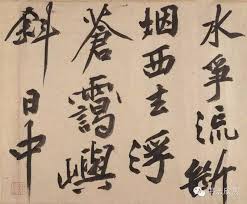 水爭流斷
烟西去浮
蒼靄嶼
斜日中